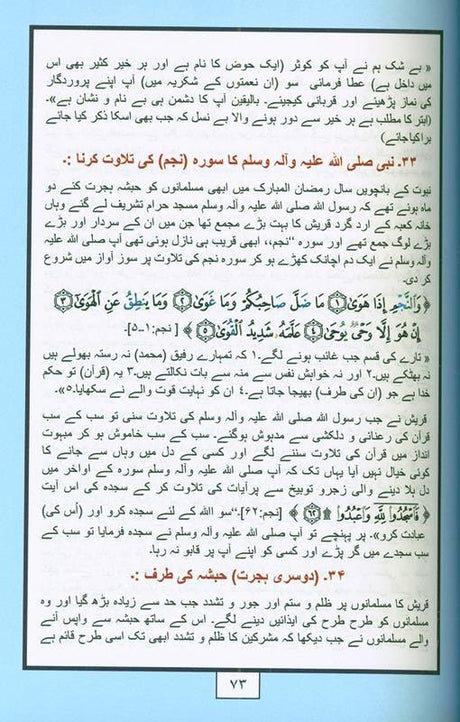 « بے شک ہم نے آپ کو کوثر (ایک حوض کا نام ہے اور ہر خیر کثیر بھی اس
میں داخل ہے) عطا فرمائی سو (ان نعمتوں کے شکریہ میں) آپ اپنے پروردگار
کی نماز پڑھئیے اور قربانی کیجیئے۔ بالیقین آپ کا دشمن ہی بے نام و نشان ہے»۔
(ابتر کا مطلب ہے ہر خیر سے دور ہونے والا بے نسل کہ جب بھی اسکا ذکر کیا جائے
براکیاجائے)
۳۳۔ نبی صلی اللہ علیہ وآلہ وسلم کا سورہ (نجم) کی تلاوت کرنا :۔
نبوت کے پانچویں سال رمضان المبارک میں ابھی مسلمانوں کو حبشہ ہجرت کئے دو
ماہ ہوئے تھے کہ رسول اللہ صلی اللہ علیہ وآلہ وسلم مسجد حرام تشریف لے گئے وہاں
خانہ کعبہ کے ارد گرد قریش کا بہت بڑے مجمع تھا جن میں ان کے سردار اور بڑے
بڑے لوگ جمع تھے اور سورہ ”نجم،، ابھی قریب ہی نازل ہوئی تھی آپ صلی اللہ علیہ
وآلہ وسلم نے ایک دم اچانک کھڑے ہو کر سورہ نجم کی تلاوت پر سوز آواز میں شروع
کر دی۔
﴿وَالنَّجْمِ إِذَا هَوَىٰ ۝١ مَا ضَلَّ صَاحِبُكُمْ وَمَا غَوَىٰ ۝٢ وَمَا يَنطِقُ عَنِ الْهَوَىٰ ۝٣
إِنْ هُوَ إِلَّا وَحْيٌ يُوحَىٰ ۝٤ عَلَّمَهُ شَدِيدُ الْقُوَىٰ ۝٥﴾ [ نجم:۱۔۵]۔
«تارے کی قسم جب غائب ہونے لگے۔۱ کہ تمہارے رفیق (محمد) نہ رستہ بھولے ہیں
نہ بھٹکے ہیں۔۲ اور نہ خواہش نفس سے منہ سے بات نکالتے ہیں۔۳ یہ (قرآن) تو حکم
خدا ہے جو (ان کی طرف) بھیجا جاتا ہے۔٤ ان کو نہایت قوت والے نے سکھایا۔٥»۔
قریش نے جب رسول اللہ صلی اللہ علیہ وآلہ وسلم کی تلاوت سنی تو سب کے سب
قرآن کی رعنائی و دلکشی سے مدہوش ہوگئے۔ سب کے سب خاموش ہو کر مبہوت
انداز میں قرآن کی تلاوت سننے لگے اور کسی کے دل میں وہاں سے جانے کا
کوئی خیال نہیں آیا یہاں تک کہ آپ صلی اللہ علیہ وآلہ وسلم سورہ کے اواخر میں
دل ہلا دینے والی زجرو توبیخ سے پرآیات کی تلاوت کر کے سجدہ کی اس آیت
﴿فَاسْجُدُوا لِلَّهِ وَاعْبُدُوا ۩ ۝٦٢﴾ [نجم:۶۲]۔”سو اللہ کے لئے سجدہ کرو اور (اُس کی)
عبادت کرو»۔ پر پہنچے تو آپ صلی اللہ علیہ وآلہ وسلم نے سجدہ فرمایا تو سب کے
سب سجدے میں گر پڑے اور کسی کو اپنے آپ پر قابو نہ رہا۔
۳۴۔ (دوسری ہجرت) حبشہ کی طرف :۔
قریش کا مسلمانوں پر ظلم و ستم اور جور و تشدد جب حد سے زیادہ بڑھ گیا اور وہ
مسلمانوں کو طرح طرح کی ایذائیں دینے لگے۔ اس کے ساتھ حبشہ سے واپس آنے
والے مسلمانوں نے جب دیکھا کہ مشرکین کا ظلم و تشدد ابھی تک اسی طرح قائم ہے
۷۳